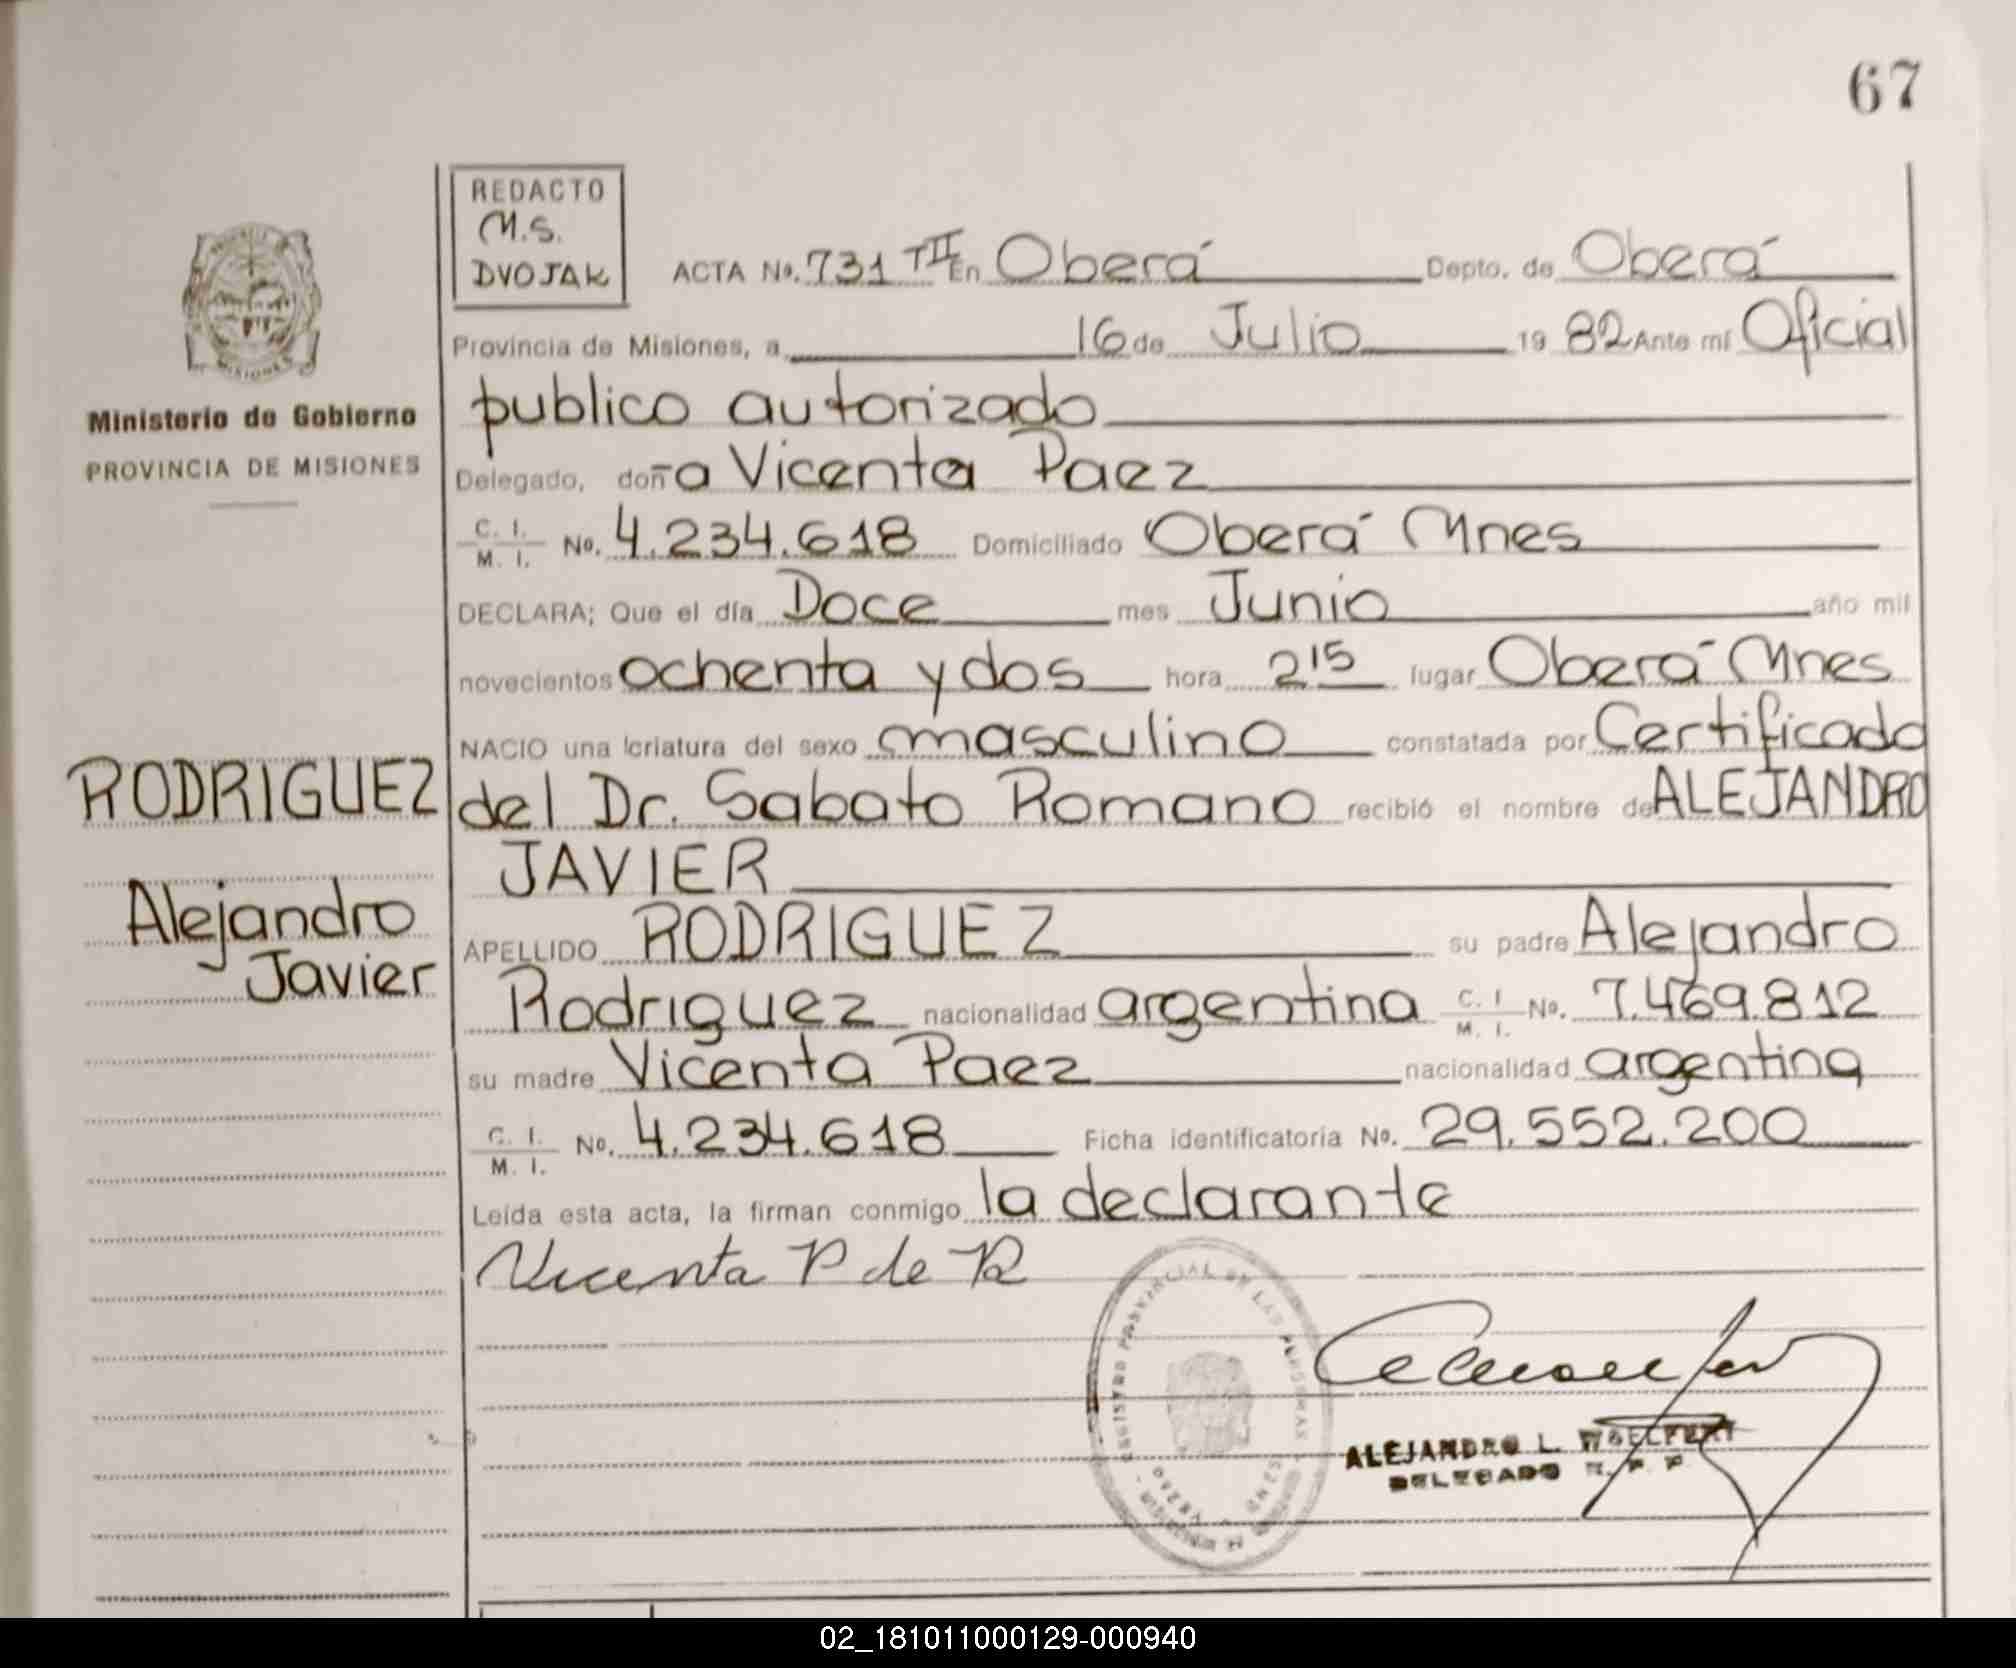 67
REDACTO
M.S.
DVOJAK
ACTA No. 731 TII En Oberá Depto. de Oberá
Provincia de Misiones, a 16 de Julio 19 82 Ante mí Oficial
publico autorizado
Ministerio de Gobierno
PROVINCIA DE MISIONES
Delegado, doña Vicenta Paez
C. I.
M. I. No. 4.234.618 Domiciliado Oberá Mnes
DECLARA; Que el día Doce mes Junio año mil
novecientos ochenta y dos hora 2 15 lugar Oberá Mnes
NACIO una criatura del sexo masculino constatada por Certificado
RODRIGUEZ
del Dr. Sabato Romano recibió el nombre de ALEJANDRO
JAVIER
Alejandro
Javier
APELLIDO RODRIGUEZ su padre Alejandro
Rodriguez nacionalidad argentina C. I. M. I. No. 7.469.812
su madre Vicenta Paez nacionalidad argentina
C. I.
M. I. No. 4.234.618 Ficha identificatoria No. 29.552.200
Leída esta acta, la firman conmigo la declarante
Vicenta P de R
REGISTRO PROVINCIAL DE LAS PERSONAS
ALEJANDRO L. WOELFERT
DELEGADO R. P. P.
02_181011000129-000940